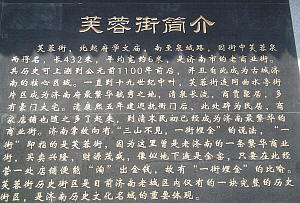 芙蓉街简介
芙蓉街，北起府学文庙，南至泉城路，因街中芙蓉泉
而得名，长432米，平均宽约6米，是济南市的老商业街。
其历史可上溯到公元前1100年前后，并且自此成为古城济
南的核心区域。一直到十九世纪中叶，芙蓉街连同曲水亭街
片区成为济南府最繁华毓秀之地，清泉长流，商贾聚居，多
有豪门大宅。清康熙五年建巡抚衙门后，此处辟为民居，商
家店铺也随之多了起来，到清末民初已经成为济南最繁华的
商业街。济南掌故向有“三山不见，一街裡金”的说法，“一
街”即指的是芙蓉街，因为这里曾是老济南的一条繁华商业
街，买卖兴隆，财源茂盛，像似地下造是金窑，只要在此经
营一处店铺便能“淘”出金钱，故有“一街裡金”的比喻。
芙蓉街历史街区是目前济南老城区内仅有的一块完整的历史
街区，是济南历史文化名城的重要体现。